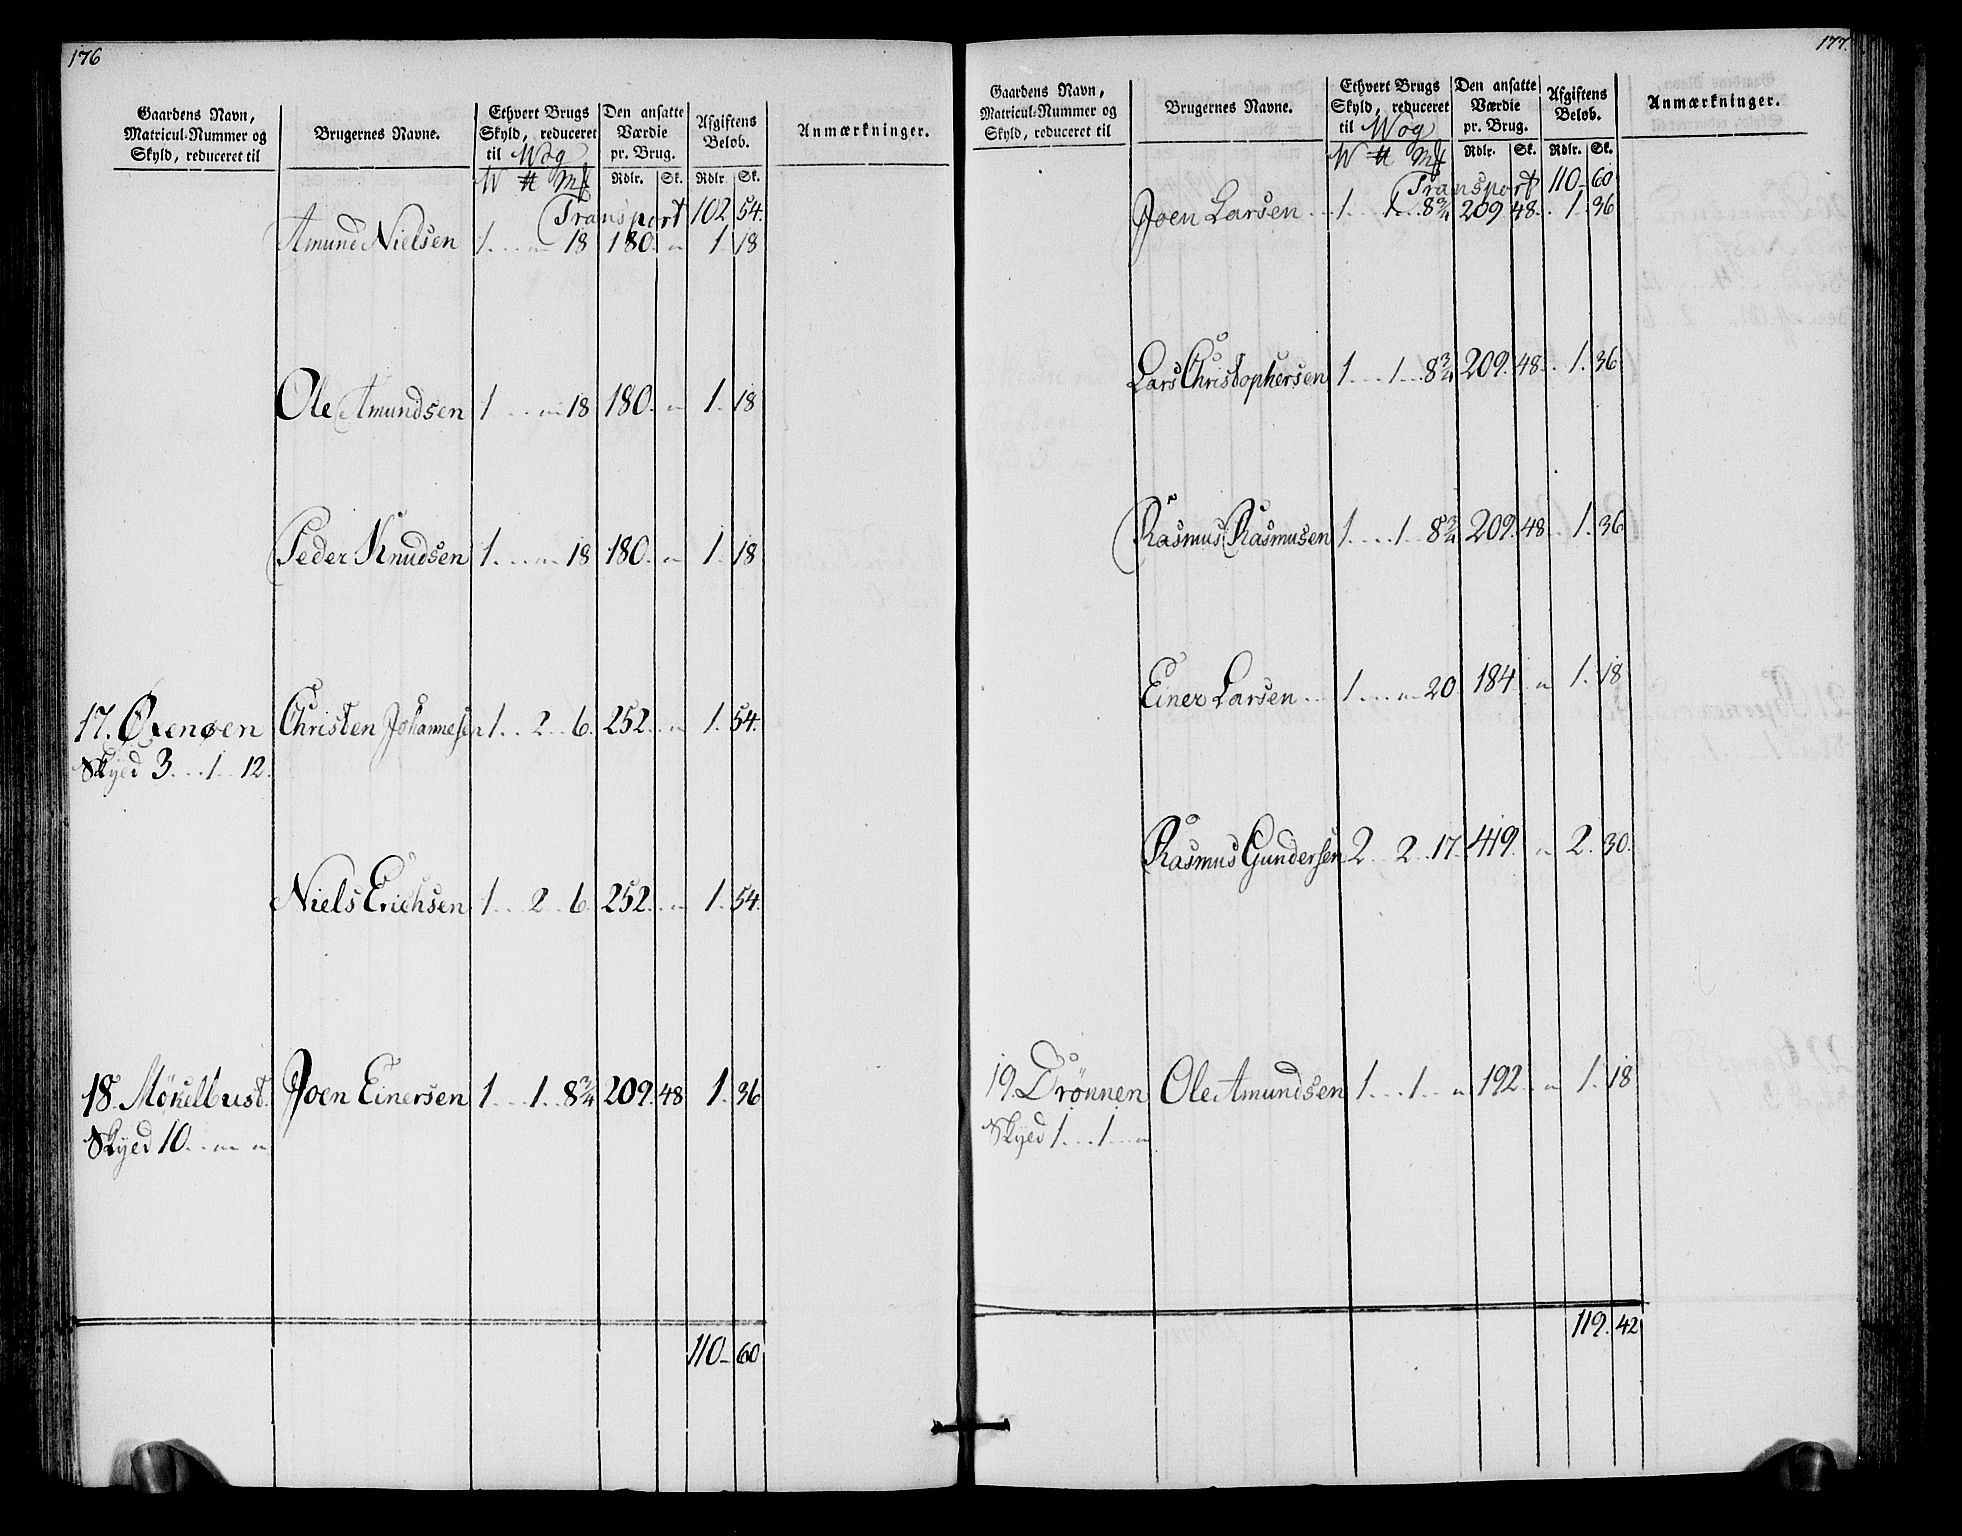 176
Gaardens Navn, Matricul-Nummer og Skyld, reduceret til
Brugernes Navne.
Ethvert Brugs Skyld, reduceret til Wog
W ℔ Mk
Den ansatte Værdie pr. Brug.
Rdlr. Sk.
Afgiftens Beløb.
Rdlr Sk.
Anmærkninger.
Transport 102 54.
Amund Nielsen 1 . . . „ 18 180. „ 1. 18
Ole Amundsen 1 . . . „ 18 180. „ 1. 18
Peder Knudsen 1 . . . „ 18 180. „ 1. 18
17. Øxenøen Christen Johannesen 1 . . 2 . . 6. 252. „ 1. 54.
Skyld 3 . . . 1 . . 12.
Niels Erichsen 1 . . 2 . . 6. 252. „ 1. 54.
18. Mökelbust. Joen Einersen 1 . . . 1 . . 8¾ 209. 48 1. 36
Skyld 10 . . „ „
110 60
177.
Gaardens Navn, Matricul-Nummer og Skyld, reduceret til
Brugernes Navne.
Ethvert Brugs Skyld, reduceret til Wog
W ℔ Mk
Den ansatte Værdie pr. Brug.
Rdlr. Sk.
Afgiftens Beløb.
Rdlr. Sk.
Anmærkninger.
Transport 110 60
Joen Larsen 1 . . . 1 . . 8¾ 209 48. 1. 36
Lars Christophersen 1 . . . 1 . . 8¾ 209. 48. 1. 36
Rasmus Rasmusen 1 . . . 1 . . 8¾ 209. 48 1. 36
Einer Larsen 1 . . . „ 20 184 „ 1. 18
Rasmus Gundersen 2 . . 2 . . 17. 419. „ 2. 30.
19. Drönnen Ole Amundsen 1 . . . 1 . . „ 192 . „ 1. 18
Skyld 1 . . . 1 . . „
119. 42